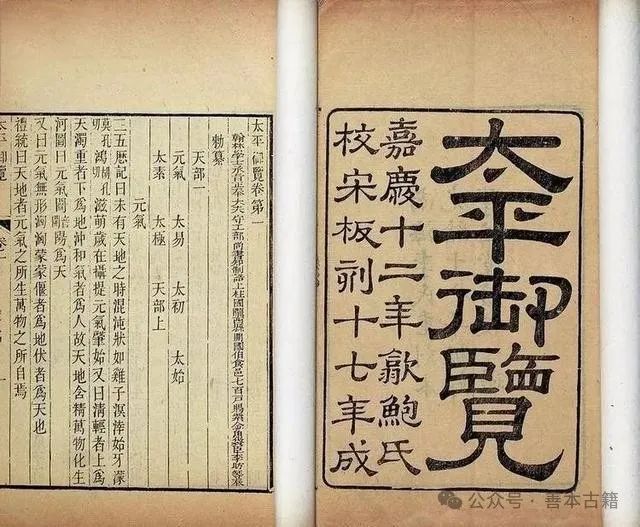 太平御覽
嘉慶十二年歙鮑氏
校宋板刻十七年成
太平御覽卷第一
翰林學士承旨正奉大夫守工部尚書知制誥上柱國隴西縣開國伯食邑七百戶賜紫金魚袋臣李昉等奉
勅纂
天部一
元氣 太易 太初 太始
太素 太極 天部上
元氣
三五歷記曰未有天地之時混沌狀如雞子溟涬始牙濛
鴻滋萌歲在攝提元氣肇始又曰清輕者上爲
天濁重者下爲地沖和氣者爲人故天地含精萬物化生
河圖曰元氣闓陽爲天
又曰元氣無形洶洶蒙蒙偃者爲地伏者爲天也
禮統曰天地者元氣之所生萬物之所自焉
太平御覽
卷一
一
公众号·善本古籍